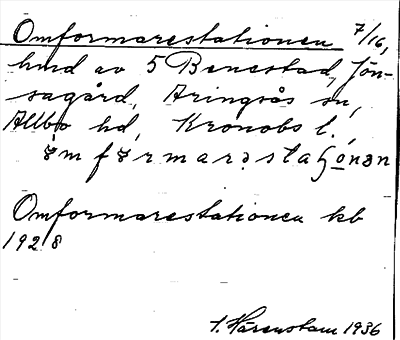 Omformarestationen 7/16,
hmd av 5 Benestad, Jön-
sagård, Aringsås sn,
Allbo hd, Kronobs l.
Omformarestationen kb
1928
S. Härenstam 1936